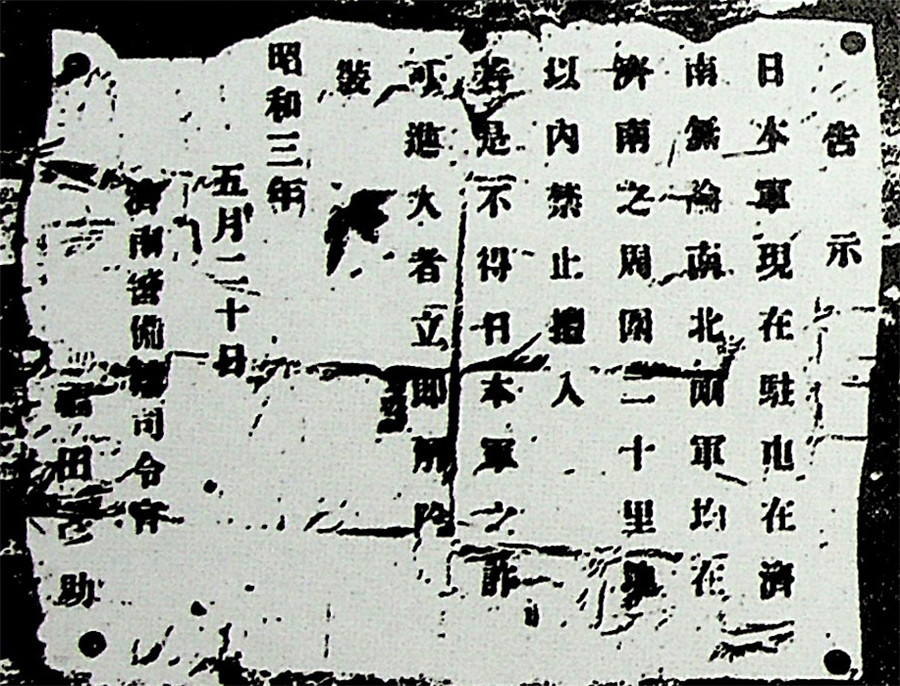 告示
日本軍現在駐屯在濟
南無論南北両軍均在
濟南之周圍二十里
以内禁止擅入
若是不得日本軍之許
可進入者立即解除
裝
昭和三年
五月二十日
濟南警備司令官
田助